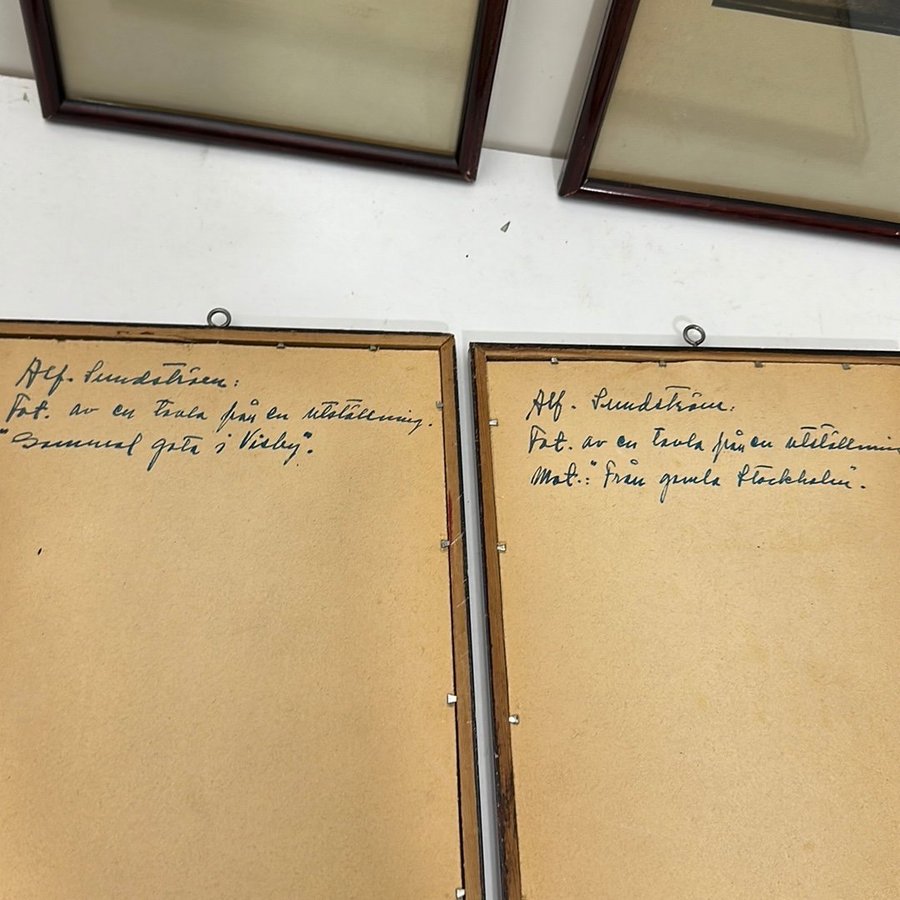 Alf. Sundström:
Fot. av en tavla från en utställning.
"Gammal gata i Visby".
Alf. Sundström:
Fot. av en tavla från en utställning
Mot.: "Från gamla Stockholm".